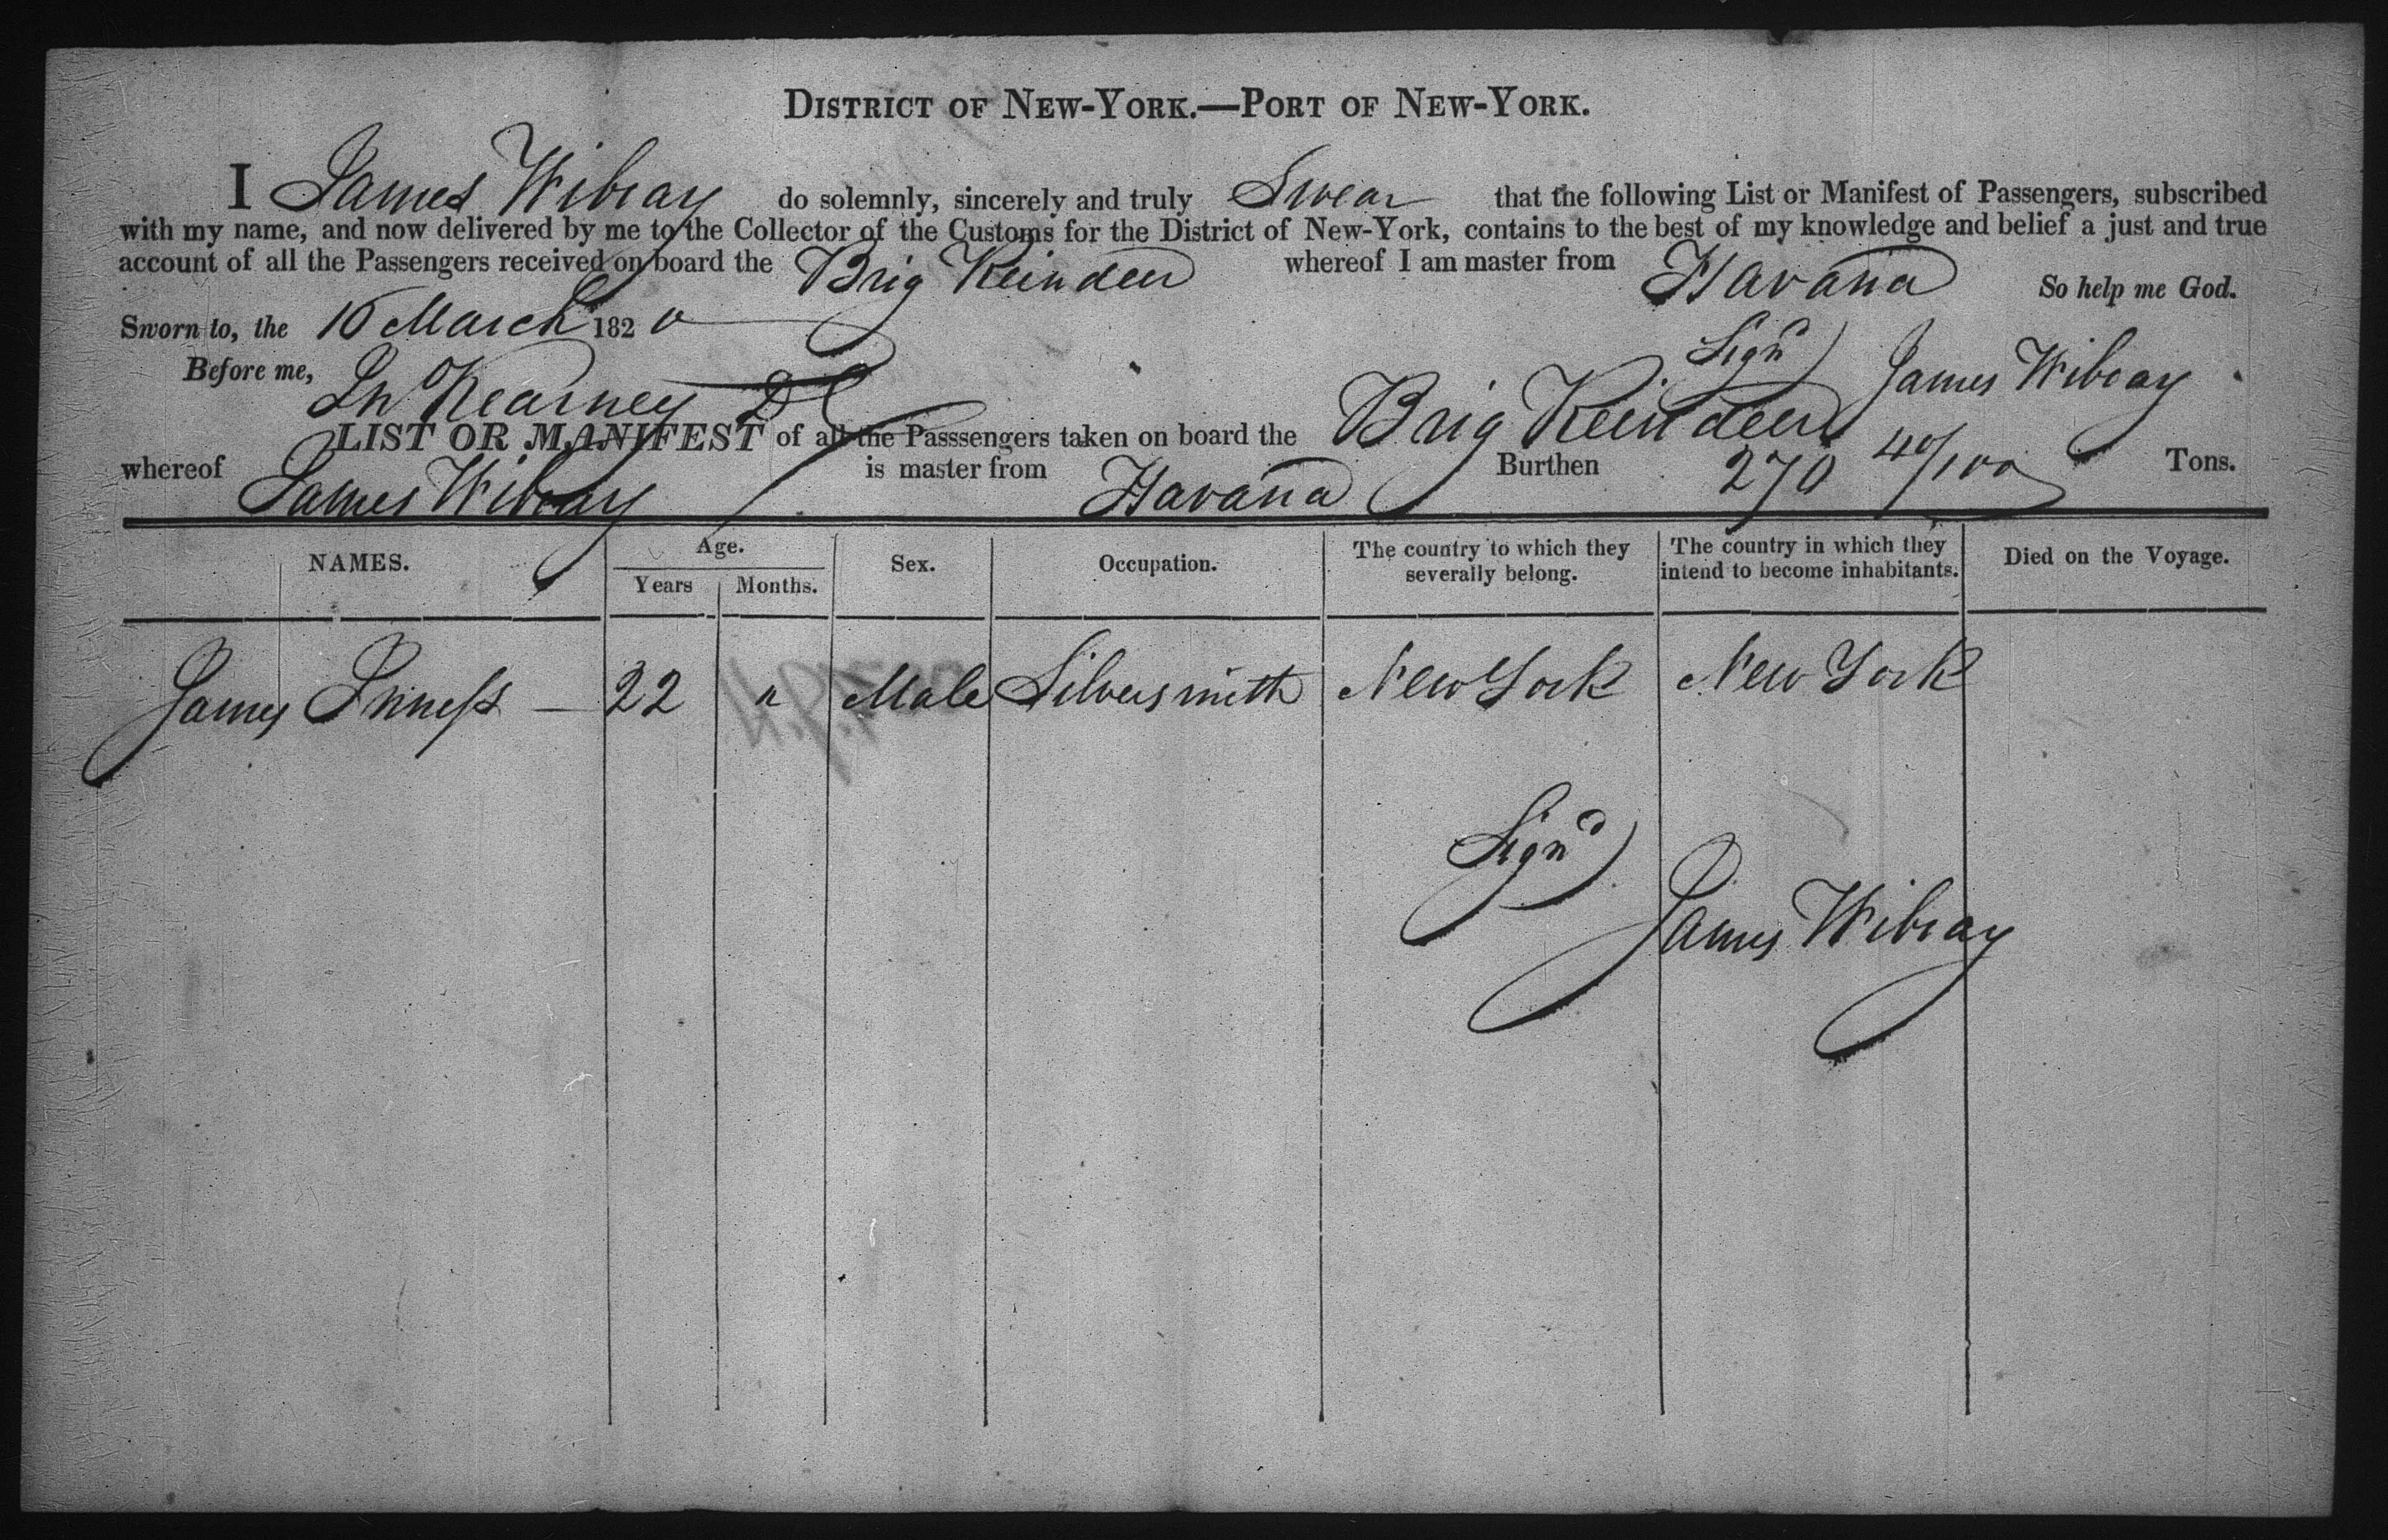 DISTRICT OF NEW-YORK.—PORT OF NEW-YORK.
I James Wibray do solemnly, sincerely and truly Swear that the following List or Manifest of Passengers, subscribed
with my name, and now delivered by me to the Collector of the Customs for the District of New-York, contains to the best of my knowledge and belief a just and true
account of all the Passengers received on board the Brig Reindeer whereof I am master from Havana So help me God.
Sworn to, the 16 March 1820
Sign'd) James Wibray
Before me, Kearney
LIST OR MANIFEST of all the Passsengers taken on board the Brig Reindeer
whereof James Wibray is master from Havana Burthen 270 40/100 Tons.
NAMES. Age. Sex. Occupation. The country to which they severally belong. The country in which they intend to become inhabitants. Died on the Voyage.
Years Months.
James 22 " Male Silversmith New York New York
Sign'd)
James Wibray